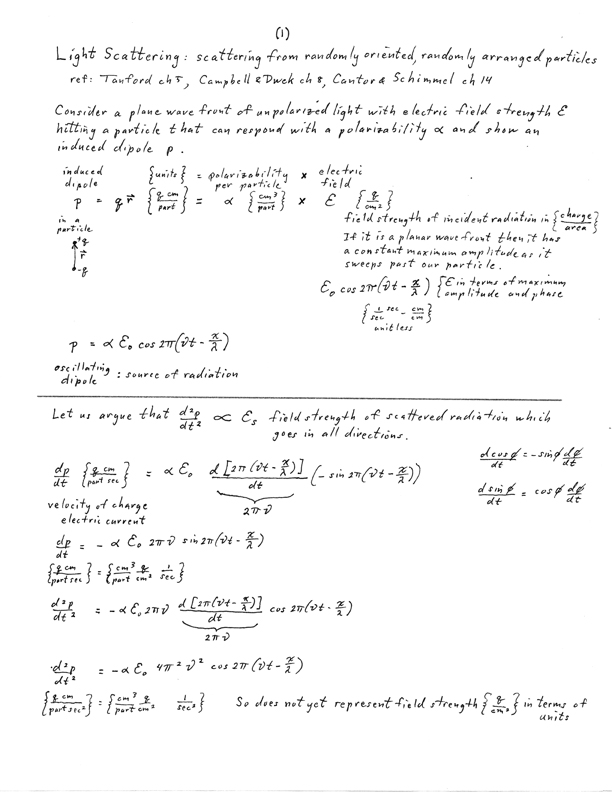 (1)
Light Scattering: scattering from randomly oriented, randomly arranged particles
ref: Tanford ch 5, Campbell & Dwek ch 8, Cantor & Schimmel ch 14
Consider a plane wave front of unpolarized light with electric field strength ℰ
hitting a particle that can respond with a polarizability α and show an
induced dipole p.
induced dipole {units} = polarizability per particle × electric field
p = q r⃗ {q cm/part} = α {cm³/part} × ℰ {q/cm²}
in a particle
+q
r⃗
-q
field strength of incident radiation in {charge/area}
If it is a planar wave front then it has
a constant maximum amplitude as it
sweeps past our particle.
ℰ₀ cos 2π(νt - x/λ) {ℰ in terms of maximum amplitude and phase
{1/sec sec - cm/cm}
unitless
p = α ℰ₀ cos 2π(νt - x/λ)
oscillating dipole : source of radiation
Let us argue that d²p/dt² ∝ ℰs field strength of scattered radiation which
goes in all directions.
d cos φ/dt = - sin φ dφ/dt
d sin φ/dt = cos φ dφ/dt
dp/dt {q cm/part sec} = α ℰ₀ d[2π(νt - x/λ)]/dt (- sin 2π(νt - x/λ))
2πν
velocity of charge
electric current
dp/dt = - α ℰ₀ 2πν sin 2π(νt - x/λ)
{q cm/part sec} = {cm³/part q/cm² 1/sec}
d²p/dt² = - α ℰ₀ 2πν d[2π(νt - x/λ)]/dt cos 2π(νt - x/λ)
2πν
d²p/dt² = - α ℰ₀ 4π² ν² cos 2π(νt - x/λ)
{q cm/part sec²} = {cm³/part q/cm² 1/sec²} So does not yet represent field strength {q/cm²} in terms of
units